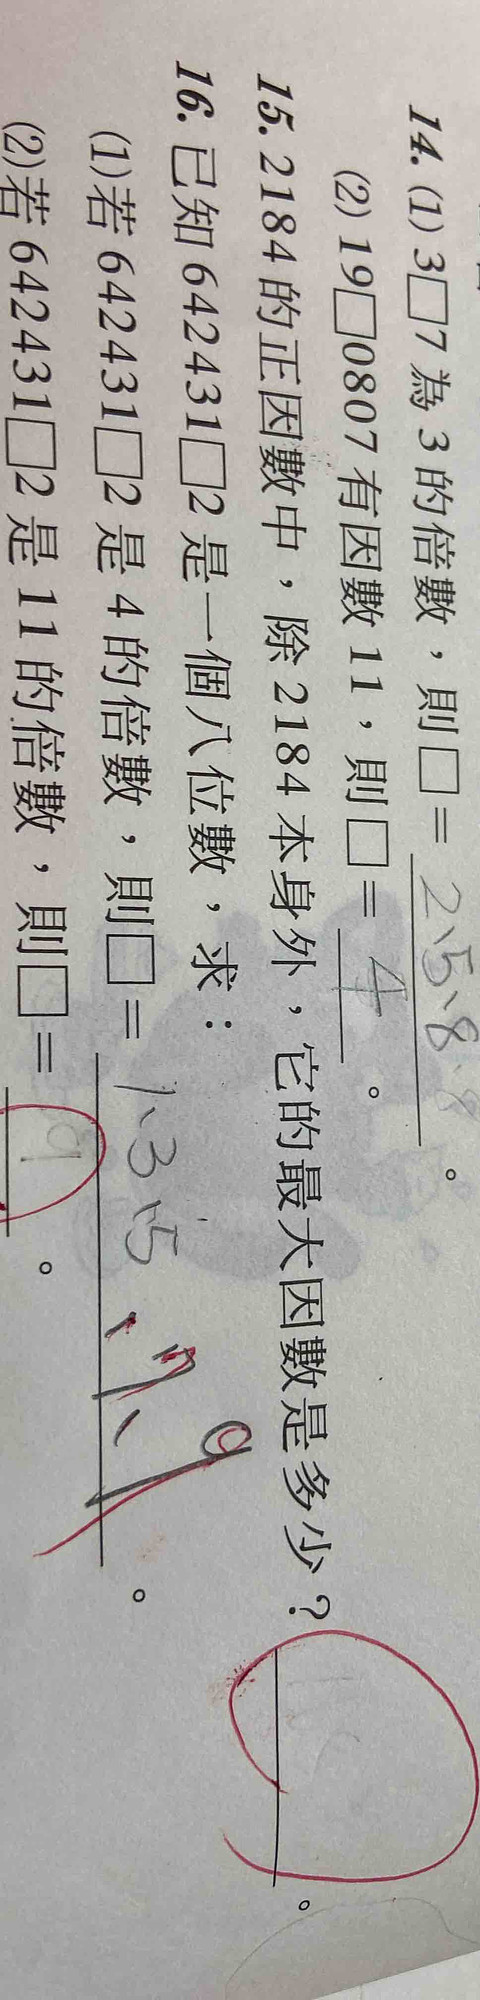 14. (1) 3□7 為 3 的倍數，則□= 2、5、8。
(2) 19□0807 有因數 11，則□= 4。
15. 2184 的正因數中，除 2184 本身外，它的最大因數是多少？
16. 已知 642431□2 是一個八位數，求：
(1) 若 642431□2 是 4 的倍數，則□= 1、3、5、7、9。
(2) 若 642431□2 是 11 的倍數，則□= 9。